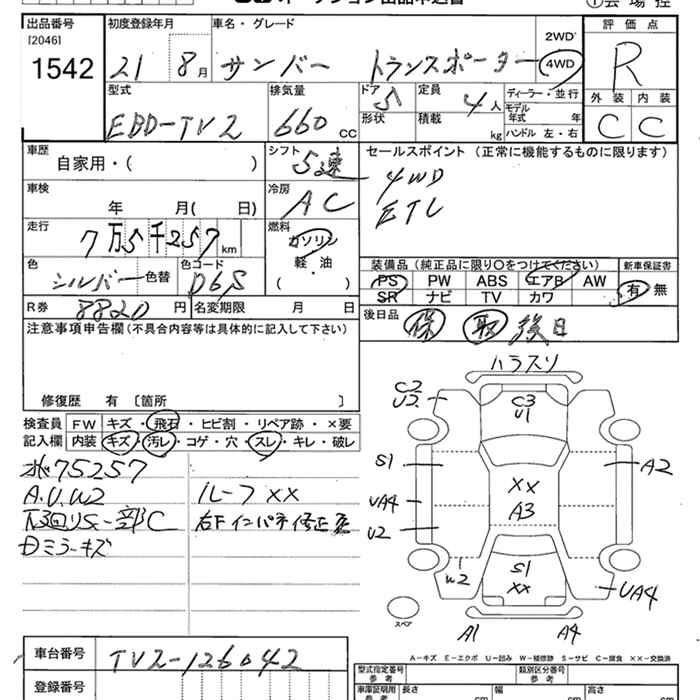 出品番号 初度登録年月 車名・グレード 評価点
[2046]
1542 21 8月 サンバー トランスポーター 2WD 4WD R
型式 排気量 ドア 定員 ディーラー・並行 外装 内装
EBD-TV2 660 CC 5 4人 モデル年式 年 C C
形状 積載 kg ハンドル 左・右
車歴 シフト セールスポイント (正常に機能するものに限ります)
自家用・( ) 5速 4WD
車検 冷房 ETC
年 月( 日) AC
走行 燃料
7万5千257km ガソリン
軽・油
( )
色 色コード 装備品 (純正品に限り○をつけてください) 新車保証書
シルバー 色替 D6S PS PW ABS エアB AW 有 無
SR ナビ TV カワ
R券 8820円 名変期限 月 日 後日品 保 取 後日
注意事項申告欄(不具合内容等は具体的に記入して下さい)
修復歴 有 [箇所 ]
検査員記入欄 FW キズ・飛石・ヒビ割・リペア跡・×要
内装 キズ・汚レ・コゲ・穴・スレ・キレ・破レ
75257
A.U.W2 ルーフ XX
下廻りS 一部C 右F インパネ修正歴
Dミラーキズ
ハラスリ
C2
U2
C3
U1
S1
A2
XX
A3
UA4
U2
W2
S1
XX
UA4
スペア
A1 A4
A-キズ E-エクボ U-凹み W-補修跡 S-サビ C-腐食 XX-交換済
車台番号 TV2-126042
登録番号
型式指定番号 参考 類別区分番号 参考
車庫証明用 参考 長さ cm 幅 cm 高さ cm